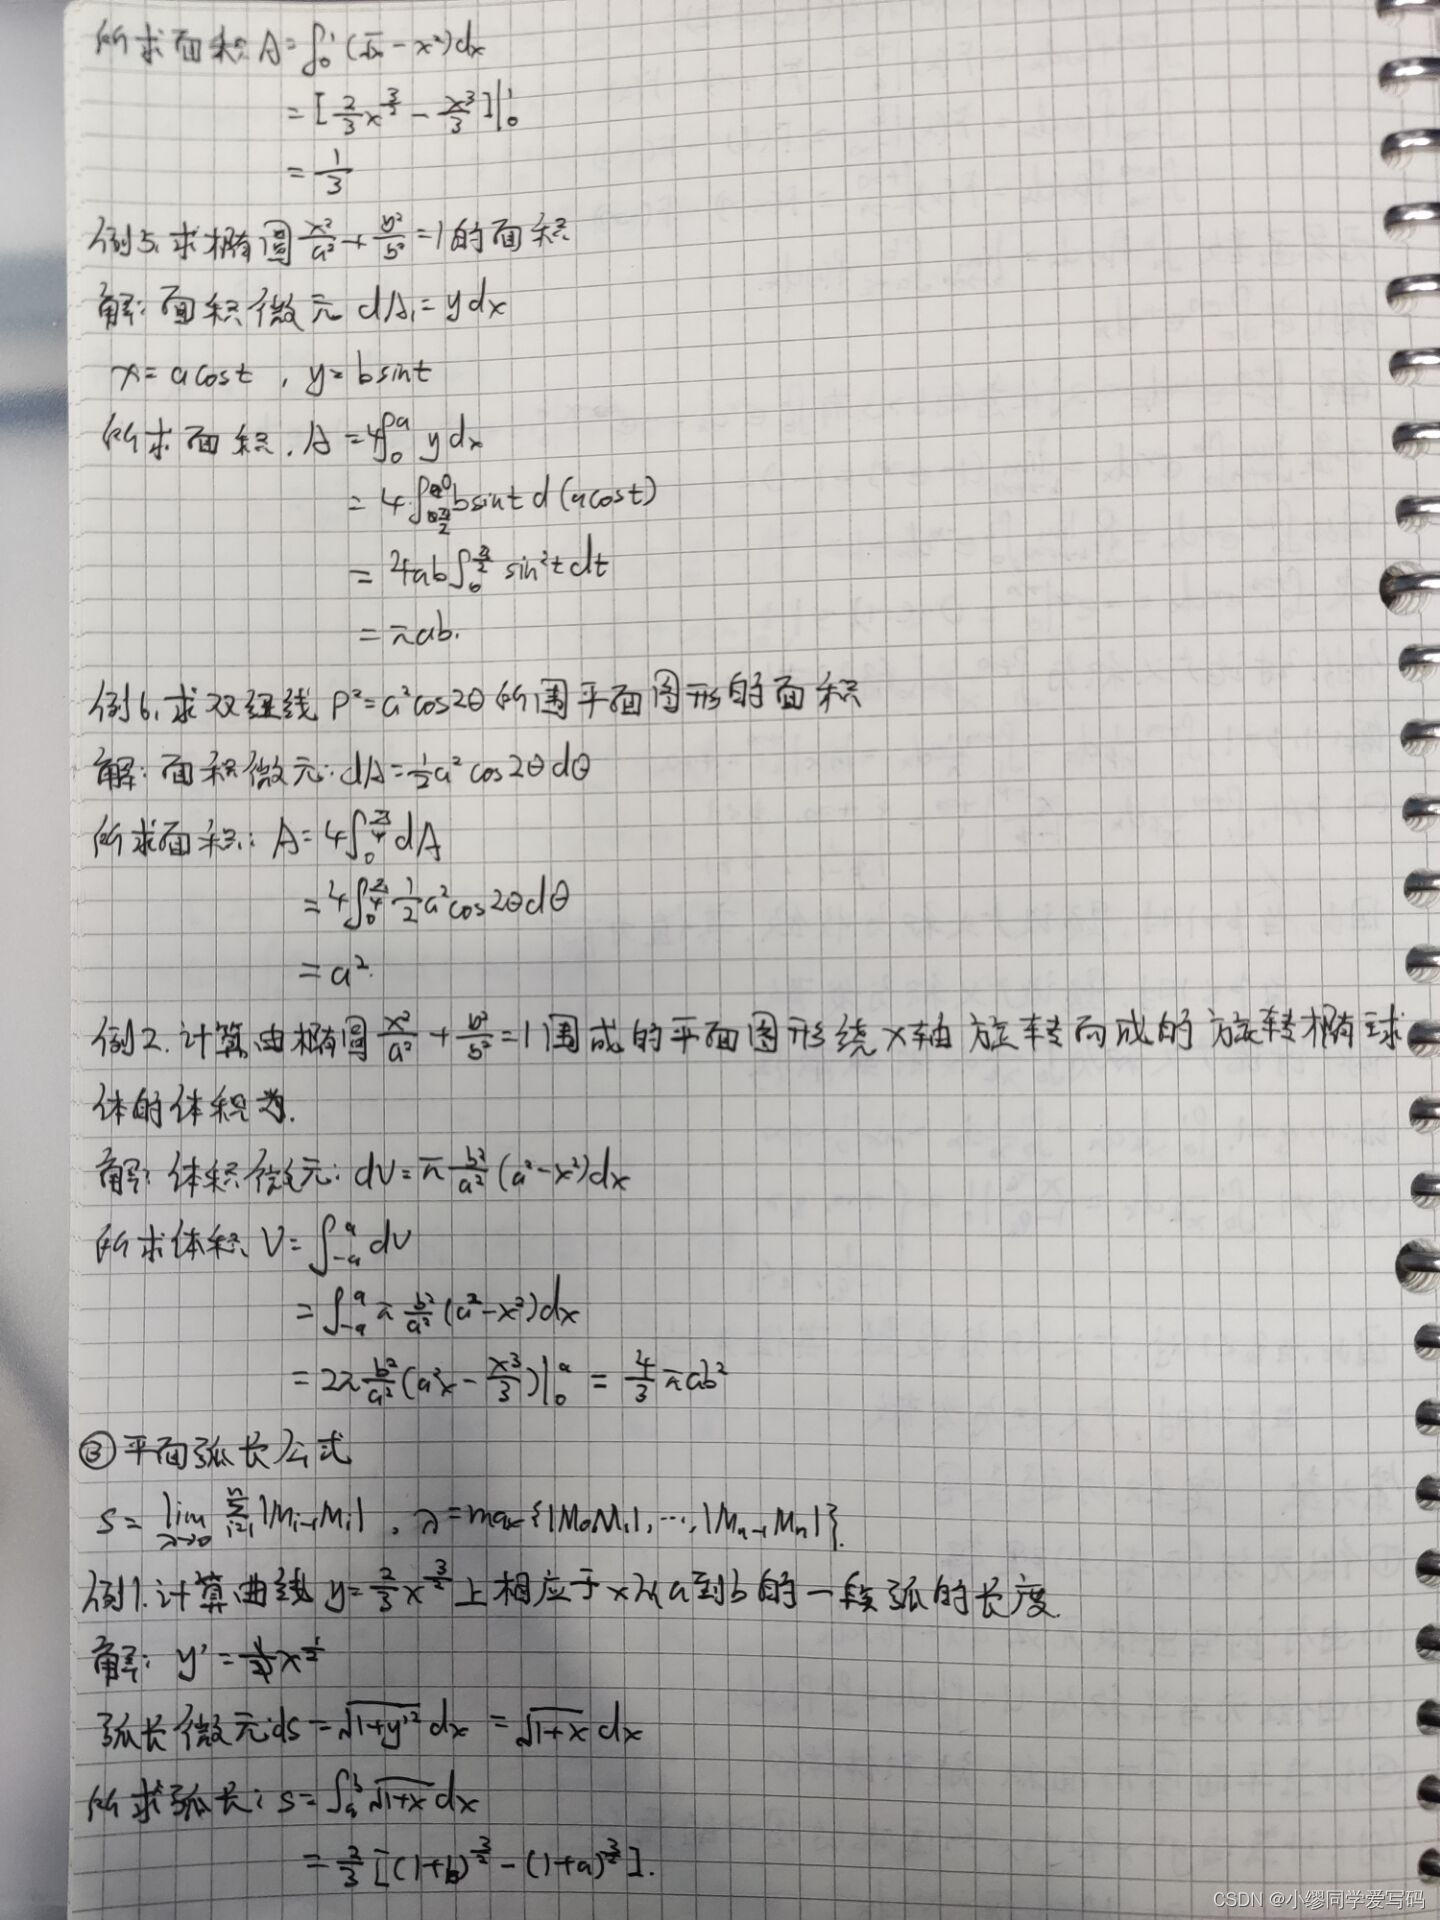 所求面积 A = ∫₀¹ (√x - x²)dx
= [2/3 x^(3/2) - x³/3]|₀¹
= 1/3
例5. 求椭圆 x²/a² + y²/b² = 1 的面积
解: 面积微元 dA₁ = ydx
x = acost , y = bsint
所求面积. A = 4∫₀ᵃ ydx
= 4∫_(π/2)^0 bsint d(acost)
= 4ab∫₀^(π/2) sin²t dt
= πab.
例6. 求双纽线 ρ² = a²cos2θ 所围平面图形的面积
解: 面积微元: dA = 1/2 a² cos2θdθ
所求面积: A = 4∫₀^(π/4) dA
= 4∫₀^(π/4) 1/2 a²cos2θdθ
= a².
例2. 计算由椭圆 x²/a² + y²/b² = 1 围成的平面图形绕x轴旋转而成的旋转椭球
体的体积为.
解: 体积微元: dV = π b²/a² (a²-x²)dx
所求体积 V = ∫₋ₐᵃ dV
= ∫₋ₐᵃ π b²/a² (a²-x²)dx
= 2π b²/a² (a²x - x³/3)|₀ᵃ = 4/3 πab²
③ 平面弧长公式
s = lim_(λ→0) Σ_(i=1)^n |M_(i-1)M_i| , λ = max{|M₀M₁|, ..., |M_(n-1)M_n|}.
例1. 计算曲线 y = 2/3 x^(3/2) 上相应于x从a到b的一段弧的长度.
解: y' = x^(1/2)
弧长微元: ds = √(1+y'²) dx = √(1+x) dx
所求弧长: s = ∫ₐᵇ √(1+x) dx
= 2/3 [(1+b)^(3/2) - (1+a)^(3/2)].
CSDN @小缪同学爱写码